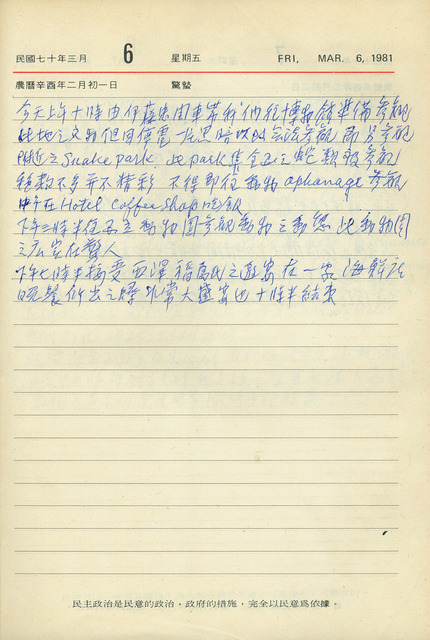 民國七十年三月 6 星期五 FRI, MAR. 6, 1981
農曆辛酉年二月初一日 驚蟄
今天上午十時由伊藤忠開車帶我们往博物館準備參觀
此地之文物但因停電 在黑暗 無法參觀 即另參觀
附近之Snake park 此park集全 之蛇類 參觀
種數不多並不精彩 不得即往動物 ophanage 參觀
中午在Hotel Coffee Shop吃飯
下午二時半往 動物園參觀動物之動態 此動物園
之広 在驚人
下午七時半接受西澤稻 氏之邀宴在一家海鮮店
晚餐所出之 非常大 宴也十時半結束
民主政治是民意的政治，政府的措施，完全以民意爲依據。